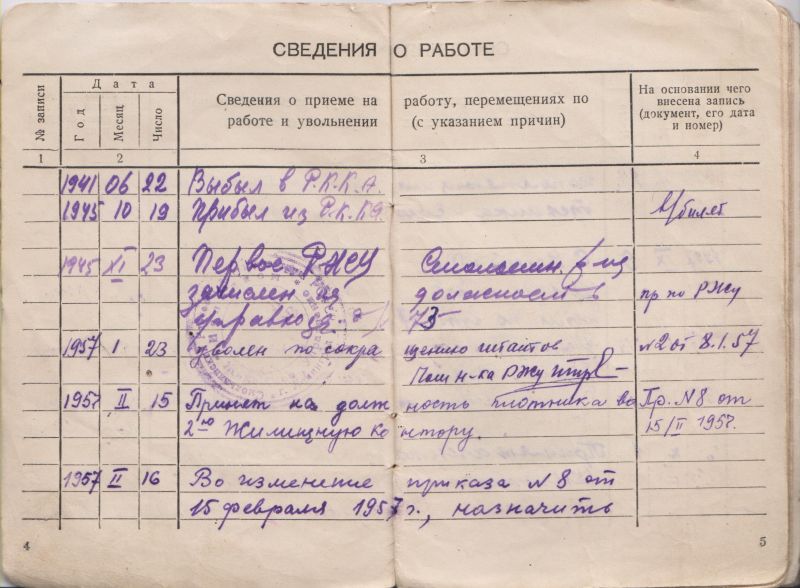 СВЕДЕНИЯ О РАБОТЕ
№ записи
Дата
Год
Месяц
Число
Сведения о приеме на работу, перемещениях по
работе и увольнении (с указанием причин)
На основании чего
внесена запись
(документ, его дата
и номер)
1 2 3 4
1941 06 22 Выбыл в Р.К.К.А.
1945 10 19 Прибыл из Р.К.КА. билет
1945 XI 23 Первое РЖУ
зачислен на должность пр по РЖУ
1957 1 23 уволен по сокращению штатов №2 от 8.1.57
РЖУ
1957 II 15 Принят на должность плотника во Пр. N8 от
2ую Жилищную контору. 15/II 1957.
1957 II 16 Во изменение приказа N8 от
15 февраля 1957г., назначить
4 5